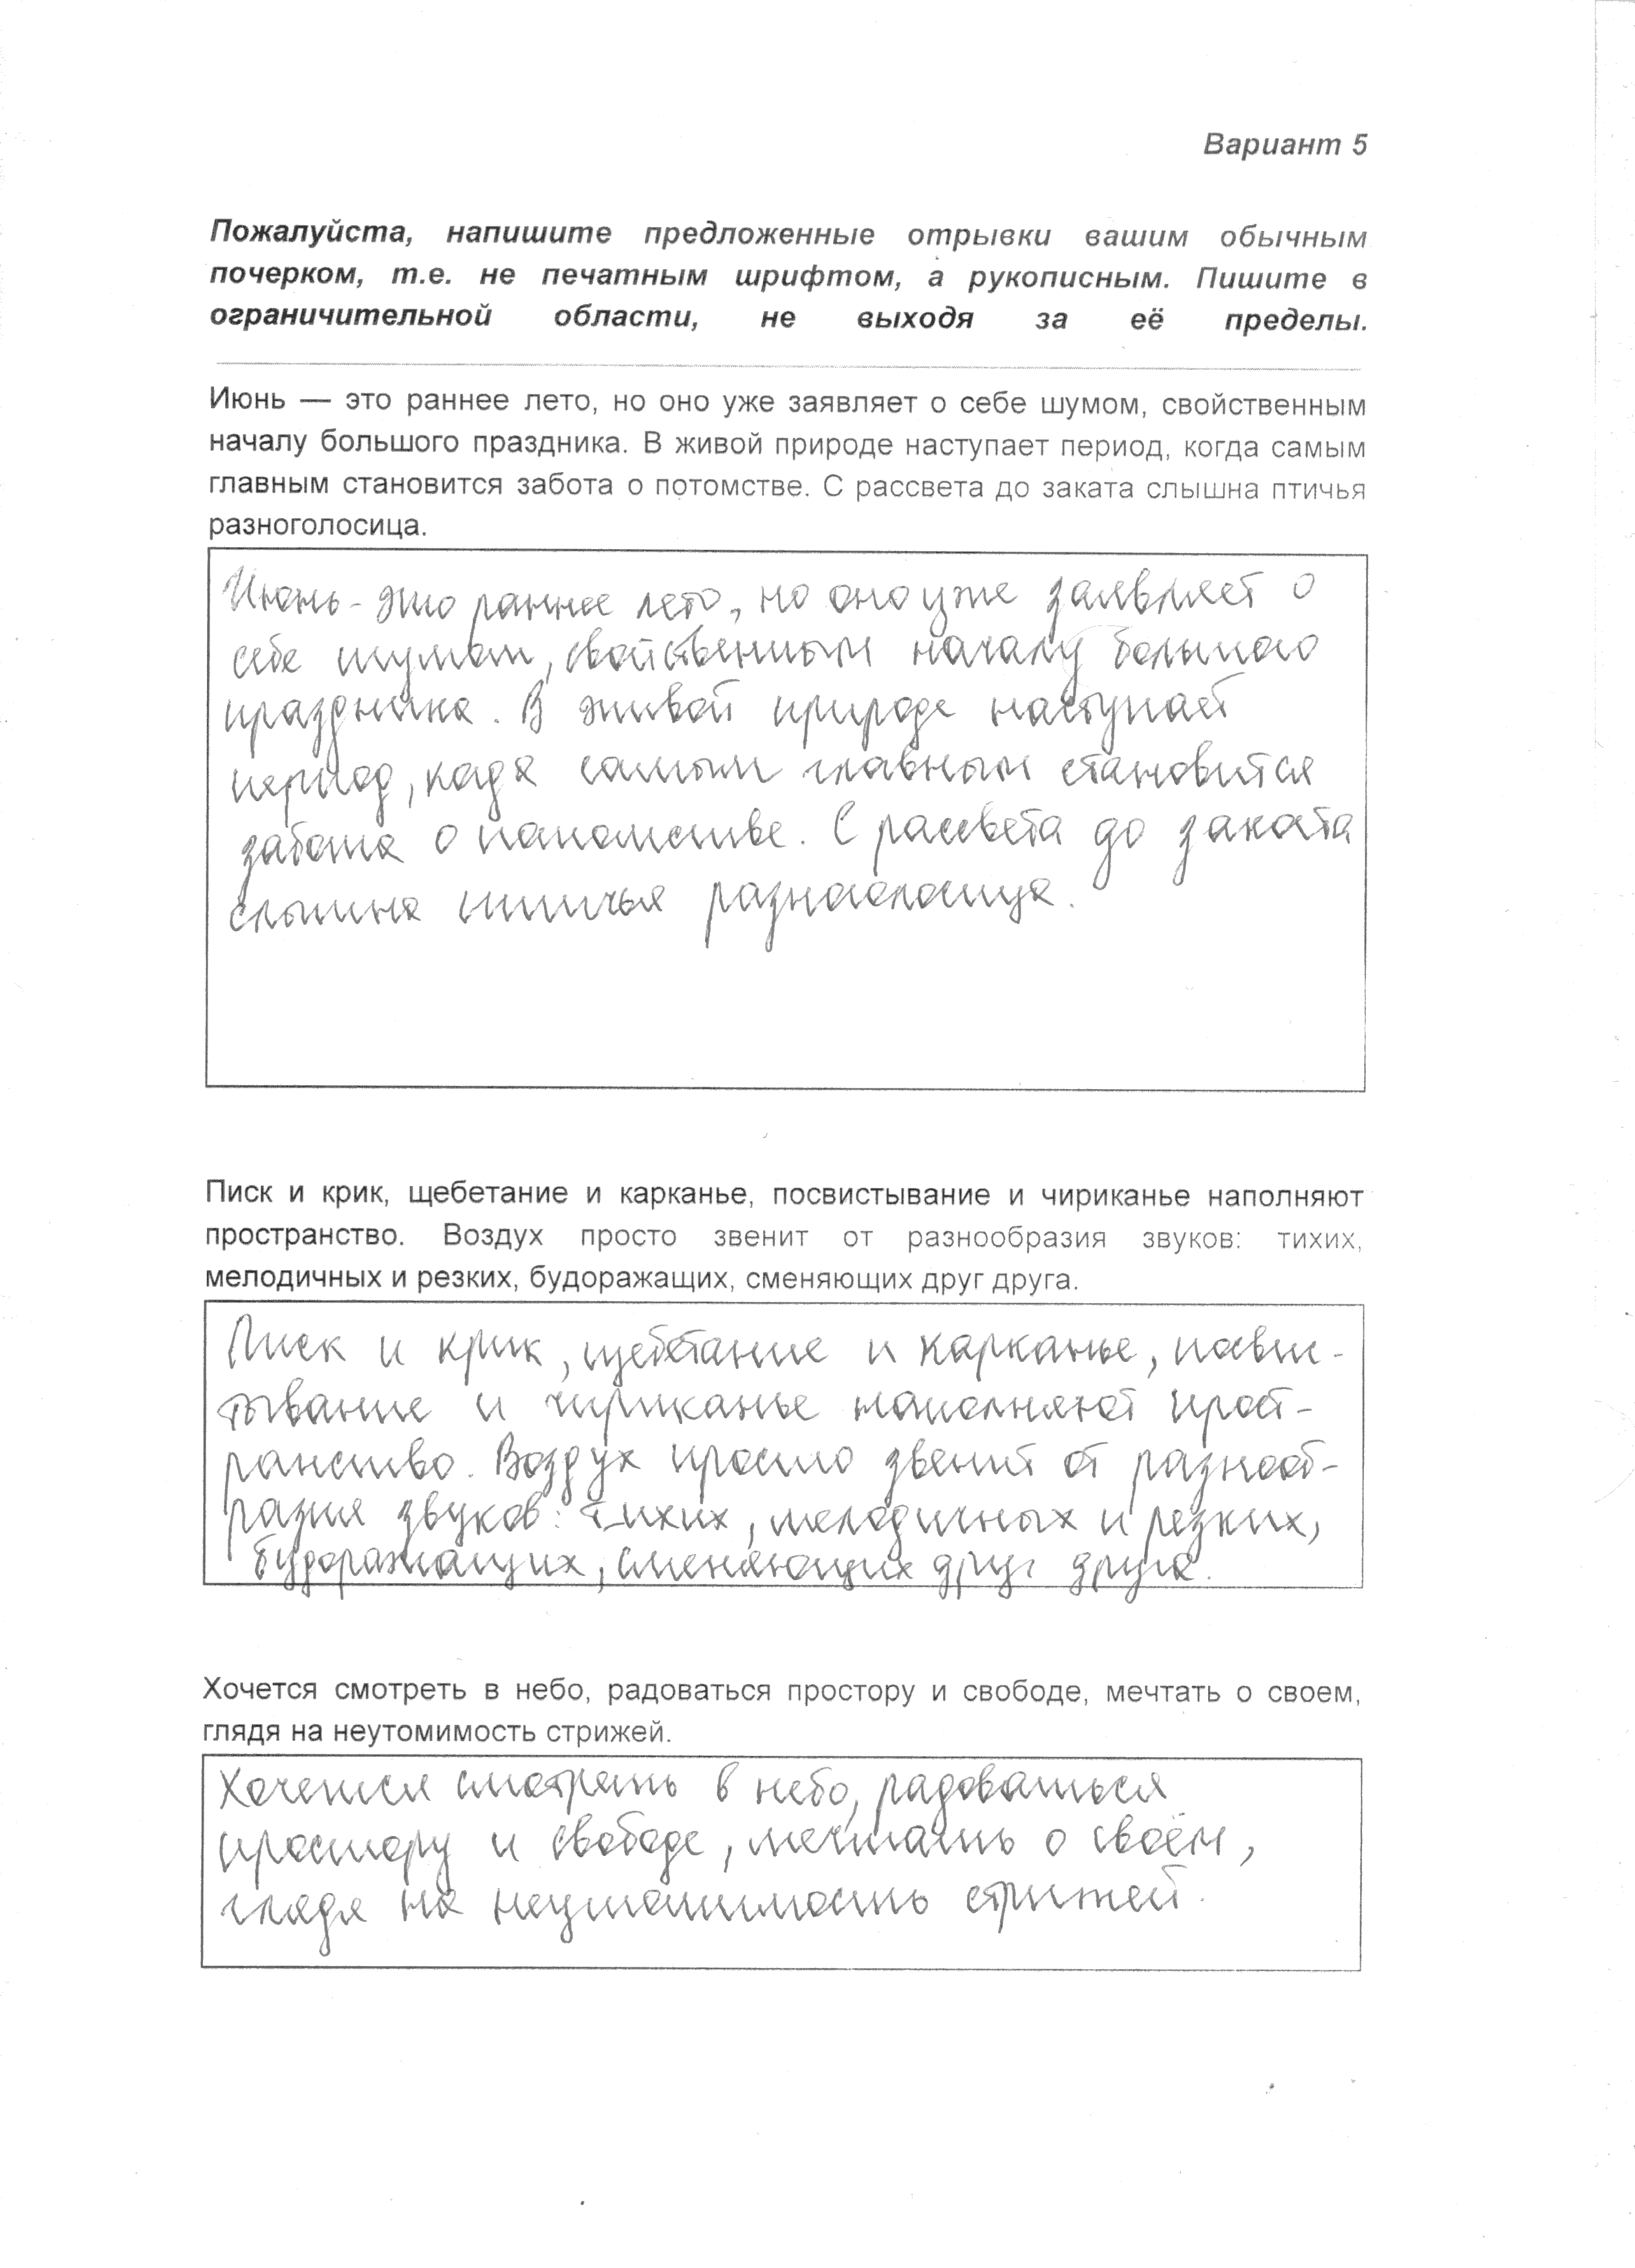 Вариант 5
Пожалуйста, напишите предложенные отрывки вашим обычным
почерком, т.е. не печатным шрифтом, а рукописным. Пишите в
ограничительной области, не выходя за её пределы.
Июнь — это раннее лето, но оно уже заявляет о себе шумом, свойственным
началу большого праздника. В живой природе наступает период, когда самым
главным становится забота о потомстве. С рассвета до заката слышна птичья
разноголосица.
Июнь - это раннее лето, но оно уже заявляет о
себе шумом, свойственным началу большого
праздника. В живой природе наступает
период, когда самым главным становится
забота о потомстве. С рассвета до заката
слышна птичья разноголосица.
Писк и крик, щебетание и карканье, посвистывание и чириканье наполняют
пространство. Воздух просто звенит от разнообразия звуков: тихих,
мелодичных и резких, будоражащих, сменяющих друг друга.
Писк и крик, щебетание и карканье, посвис-
тывание и чириканье наполняют прост-
ранство. Воздух просто звенит от разнооб-
разия звуков: тихих, мелодичных и резких,
будоражащих, сменяющих друг друга.
Хочется смотреть в небо, радоваться простору и свободе, мечтать о своем,
глядя на неутомимость стрижей.
Хочется смотреть в небо, радоваться
простору и свободе, мечтать о своём,
глядя на неутомимость стрижей.